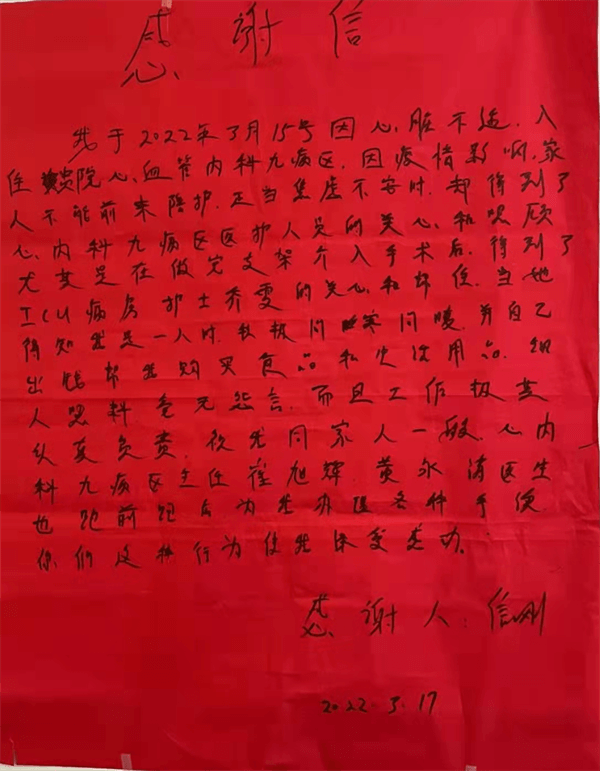 感谢信
我于2022年3月15号因心脏不适.入
住贵院心血管内科九病区.因疫情影响.家
人不能前来陪护.正当焦虑不安时.却得到了
心内科九病区医护人员的关心和照顾
尤其是在做完支架介入手术后.得到了
ICU病房护士乔雯的关心和帮住.当她
得知我是一人时.积极问寒问暖.并自己
出钱帮我购买食品和洗漱用品.细
人照料.毫无怨言.而且工作极其
认真负责.视我同家人一般.心内
科九病区主任崔旭辉.黄永清医生
也跑前跑后为我办理各种手续
你们这种行为使我深受感动.
感谢人:信刚
2022.3.17